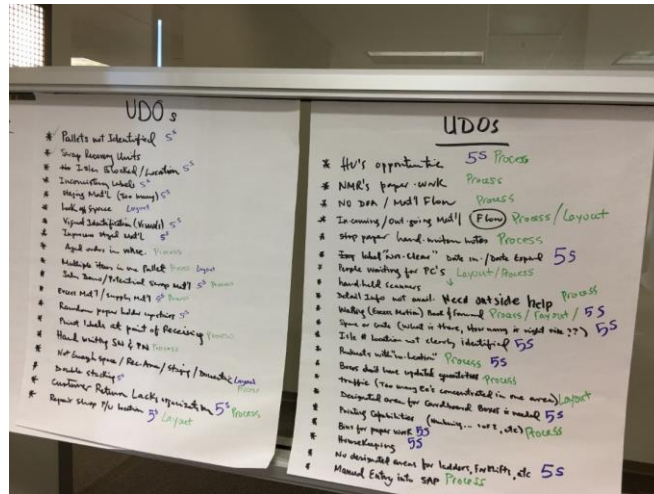 UDOs
* Pallets not Identified 5S
* Swap Recovery Units
* No Isles Blocked/Location 5S
* Inconsistency Labels 5S
* Staging Mat'l (Too many) 5S
* Lack of Space Layout
* Visual Identification (Visuals) 5S
* Improper staged Mat'l 5S
* Aged orders in whse. Process
* Multiple items in one Pallet Process Layout
* /Potential Swap Mat'l 5S Process
* Excess Mat'l/Supply Mat'l 5S Process
* Random paper holder 5S Process
* Print labels at point of Receiving Process
* Hand writing SN & PN Process
* Not enough space/Rec Area/Ship/Domestic Layout Process
* Double stacking 5S
* Customer Return Lacks organization 5S Process
* Repair Shop P/U location 5S Layout
UDOs
* HU's opportunitie 5S Process
* NMR's paper-work Process
* NO DPA / Mat'l Flow Process
* Incoming/Out-going Mat'l Flow Process/Layout
* Stop paper hand-written notes Process
* label "Non-Clear" Date in-/Date Expend 5S
* People waiting for PC's Layout/Process
* hand-held scanners
* Detail Info not avail. Need outside help Process
* Walking (Excess Motion) Back & forward Process/Layout/5S
* Spare or units (What is there, How many is right size??) 5S
* Isle # Location not clearly identified 5S
* Products with "no-location" Process 5S
* Boxes don't have updated quantities Process
* traffic (Too many Eo's concentrated in one area) Layout
* Designated area for Cardboard Boxes is needed 5S
* Printing Capabilities etc) Process
* Bins for paper work 5S
* Housekeeping 5S
* No designated areas for ladders, Forklifts, etc 5S
* Manual Entry into SAP Process